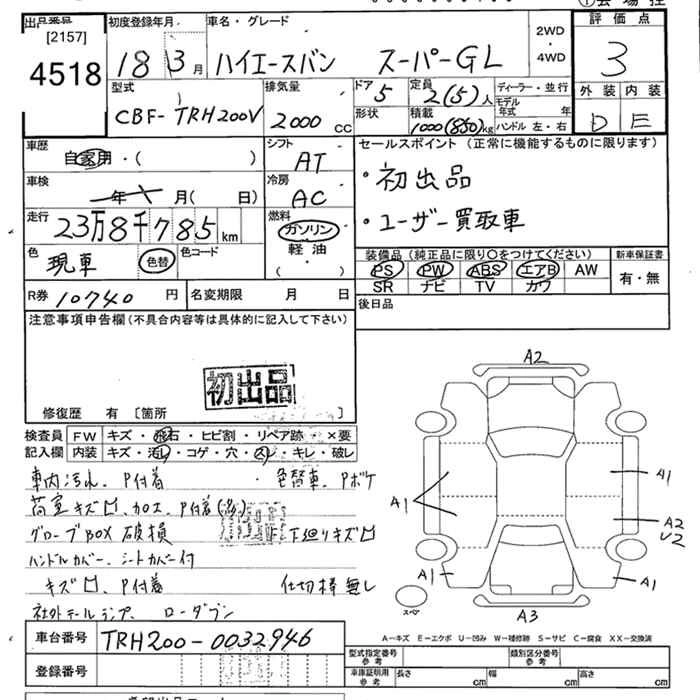 出品番号
[2157]
4518
初度登録年月
18 3月
車名・グレード
ハイエースバン スーパーGL
2WD
・
4WD
評価点
3
外装 内装
D E
型式
CBF-TRH200V
排気量
2000 cc
ドア
5
形状
定員
2(5)人
積載
1000(850)kg
ディーラー・並行
モデル年式 年
ハンドル 左・右
車歴
自家用・( )
シフト
AT
車検
年 月( 日)
冷房
AC
走行
23万8千785km
燃料
ガソリン
軽油
・( )
色
現車
色替
色コード
R券 10740円
名変期限 月 日
セールスポイント(正常に機能するものに限ります)
・初出品
・ユーザー買取車
装備品(純正品に限り○をつけてください)
PS PW ABS エアB AW
SR ナビ TV カワ
新車保証書
有・無
後日品
注意事項申告欄(不具合内容等は具体的に記入して下さい)
初出品
修復歴 有 〔箇所 〕
検査員記入欄
FW キズ・飛石・ヒビ割・リペア跡・×要
内装 キズ・汚レ・コゲ・穴・スレ・キレ・破レ
車内汚れ、P付着 ・色替車、Pボケ
荷室キズ凹、加工、P付着(多)
グローブBOX破損 下廻りキズ凹
ハンドルカバー、シートカバー付
キズ凹、P付着 仕切棒無し
社外テールランプ、ローダウン
A2
A1
A1
A2
U2
A1
A1
スペア
A3
A―キズ E―エクボ U―凹み W―補修跡 S―サビ C―腐食 XX―交換済
車台番号 TRH200-0032946
登録番号
型式指定番号 参考
類別区分番号 参考
車庫証明用 参考
長さ cm 幅 cm 高さ cm